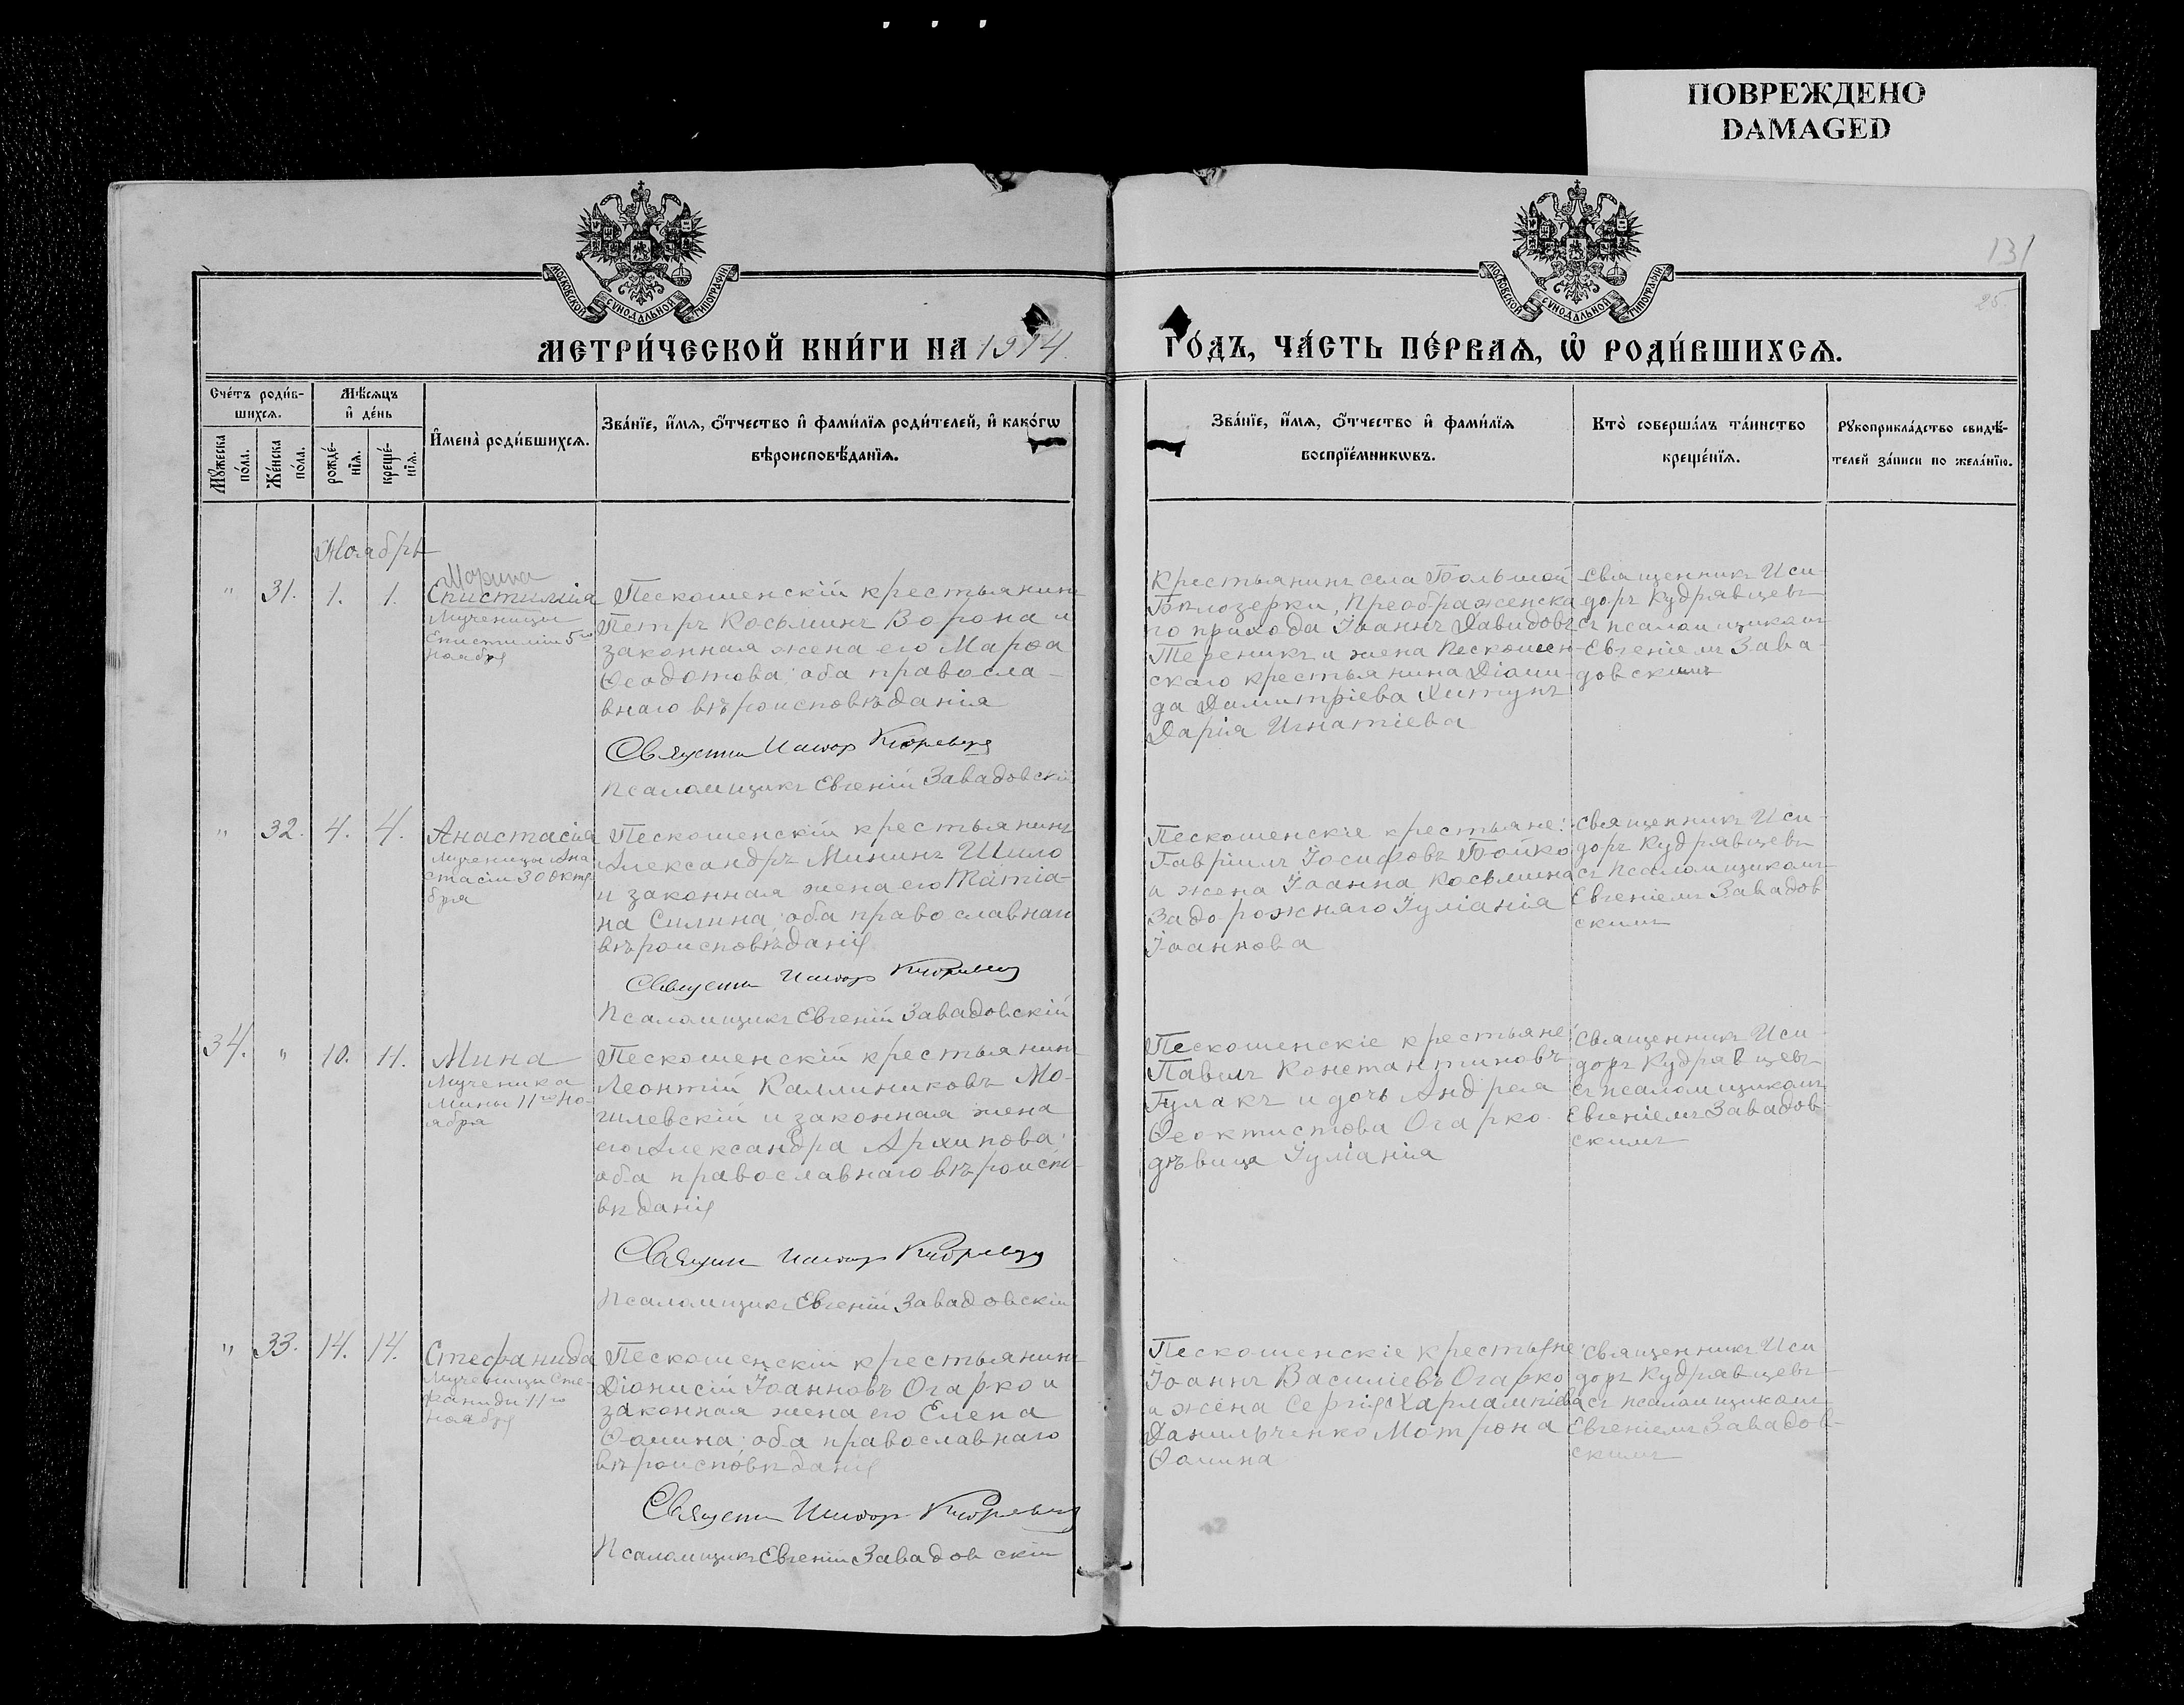 ПОВРЕЖДЕНО
DAMAGED
131
25.
МОСКОВСКОЙ СУНОДАЛЬНОЙ ТИПОГРАФІИ
МОСКОВСКОЙ СУНОДАЛЬНОЙ ТИПОГРАФІИ
МЕТРИ́ЧЕСКОЙ КНИ́ГИ НА 1914.
ГО́ДЪ, ЧА́СТЬ ПЕ́РВАѦ, Ѡ҆ РОДИ́ВШИХСѦ.
Сче́тъ роди́в-
шихсѧ.
Мѣ́сѧцъ
и҆ де́нь
Мꙋ́жеска по́ла.
Же́нска по́ла.
рожде́-
нїѧ.
креще́-
нїѧ.
И҆мена̀ роди́вшихсѧ.
Зва́нїе, и҆́мѧ, ѻ҆́тчество и҆ фами́лїѧ роди́телей, и҆ како́гѡ
вѣроисповѣ́данїѧ.
Зва́нїе, и҆́мѧ, ѻ҆́тчество и҆ фами́лїѧ
воспрїе́мникѡвъ.
Кто̀ соверша́лъ та́инство
креще́нїѧ.
Рꙋкоприкла́дство свидѣ́-
телей за́писи по жела́нїю.
Ноябрь
" 31. 1. 1.
Марина
Епистилія
Мученицы
Епистиліи 5го
ноября
Пескошенскій крестьянинъ
Петръ Косьминъ Ворона и
законная жена его Марѳа
Ѳеодотова; оба правосла-
внаго вѣроисповѣданія
Священн Исидор Кудрявцев
Псаломщикъ Евгеній Завадовскій
Крестьянинъ села Большой
Бѣлозерки, Преображенска
го прихода Іоаннъ Давидовъ
Тереникъ и жена Пескошен-
скаго крестьянина Діоми-
да Димитріева Хитунъ
Дарія Игнатіева
Священникъ Иси-
доръ Кудрявцевъ
съ псаломщикомъ
Евгеніемъ Зава-
довскимъ
" 32. 4. 4.
Анастасія
Мученицы Ана
стасіи 30 Октя
бря
Пескошенскій крестьянинъ
Александръ Мининъ Шило
и законная жена его Татіа-
на Силина; оба православнаго
вѣроисповѣданія
Священн Исидор Кудрявцев
Псаломщикъ Евгеній Завадовскій
Пескошенскіе крестьяне:
Гавріилъ Іосифовъ Бойко
и жена Іоанна Косьмина
Задорожняго Іуліанія
Іоаннова
Священникъ Иси-
доръ Кудрявцевъ
съ псаломщикомъ
Евгеніемъ Завадов
скимъ
34. " 10. 11.
Мина
Мученика
Мины 11го Но-
ября
Пескошенскій крестьянинъ
Леонтій Каллиниковъ Мо-
гилевскій и законная жена
его Александра Архипова;
оба православнаго вѣроиспо-
вѣданія
Священ Исидор Кудрявцев
Псаломщикъ Евгеній Завадовскій
Пескошенскіе крестьяне:
Павелъ Константиновъ
Гулакъ и дочь Андрея
Ѳеоктистова Огарко
дѣвица Іуліанія
Священникъ Иси-
доръ Кудрявцевъ
съ псаломщикомъ
Евгеніемъ Завадов
скимъ
" 33. 14. 14.
Стефанида
Мученицы Сте-
фаниды 11го
ноября
Пескошенскій крестьянинъ
Діонисій Іоанновъ Огарко и
законная жена его Елена
Ѳомина; оба православнаго
вѣроисповѣданія
Священн Исидор Кудрявцев
Псаломщикъ Евгеній Завадовскій
Пескошенскіе крестьяне:
Іоаннъ Василіевъ Огарко
и жена Сергія Харлампіева
Данильченко Мотрона
Ѳомина
Священникъ Иси
доръ Кудрявцевъ
съ псаломщикомъ
Евгеніемъ Завадов-
скимъ